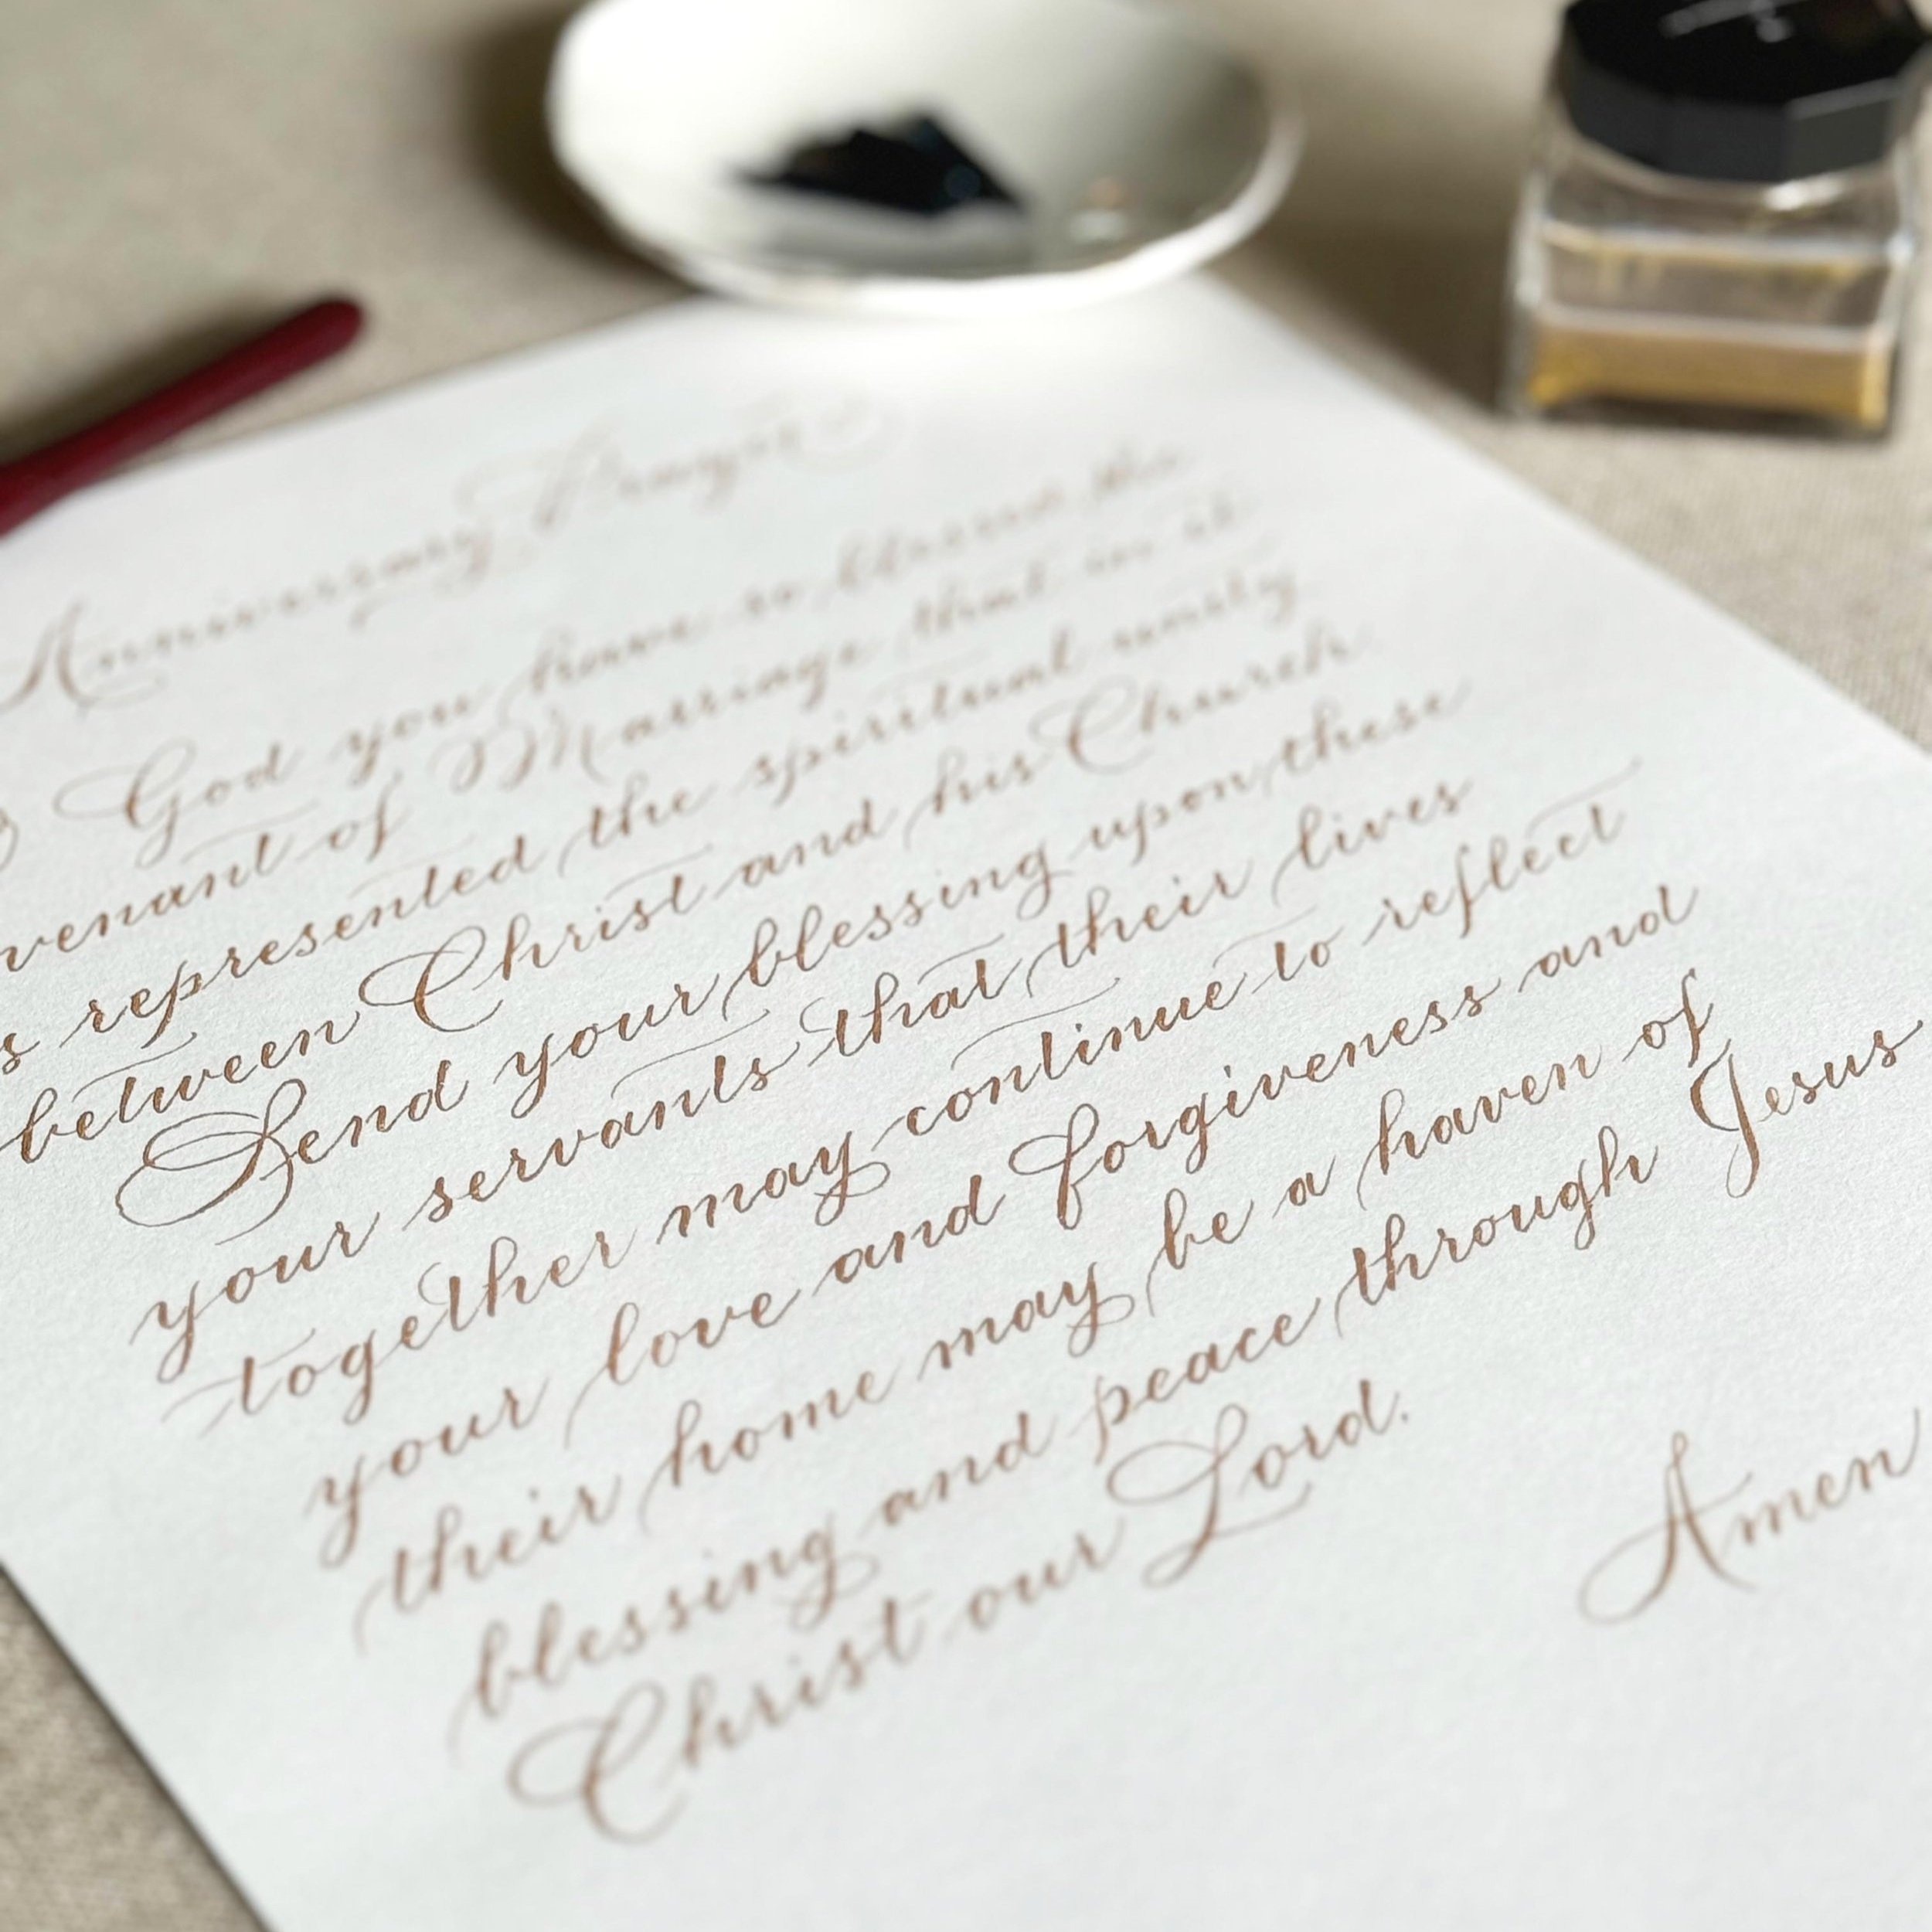 Anniversary Prayer
O God you have so blessed the
venant of Marriage that in it
s represented the spiritual unity
between Christ and his Church.
Send your blessing upon these
your servants that their lives
together may continue to reflect
your love and forgiveness and
their home may be a haven of
blessing and peace through Jesus
Christ our Lord.
Amen